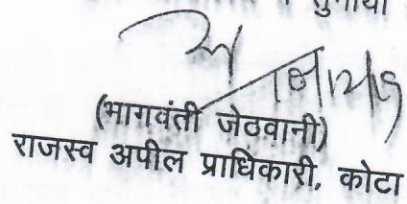 सुनाया
18/12/19
(भागवंती जेठवानी)
राजस्व अपील प्राधिकारी, कोटा